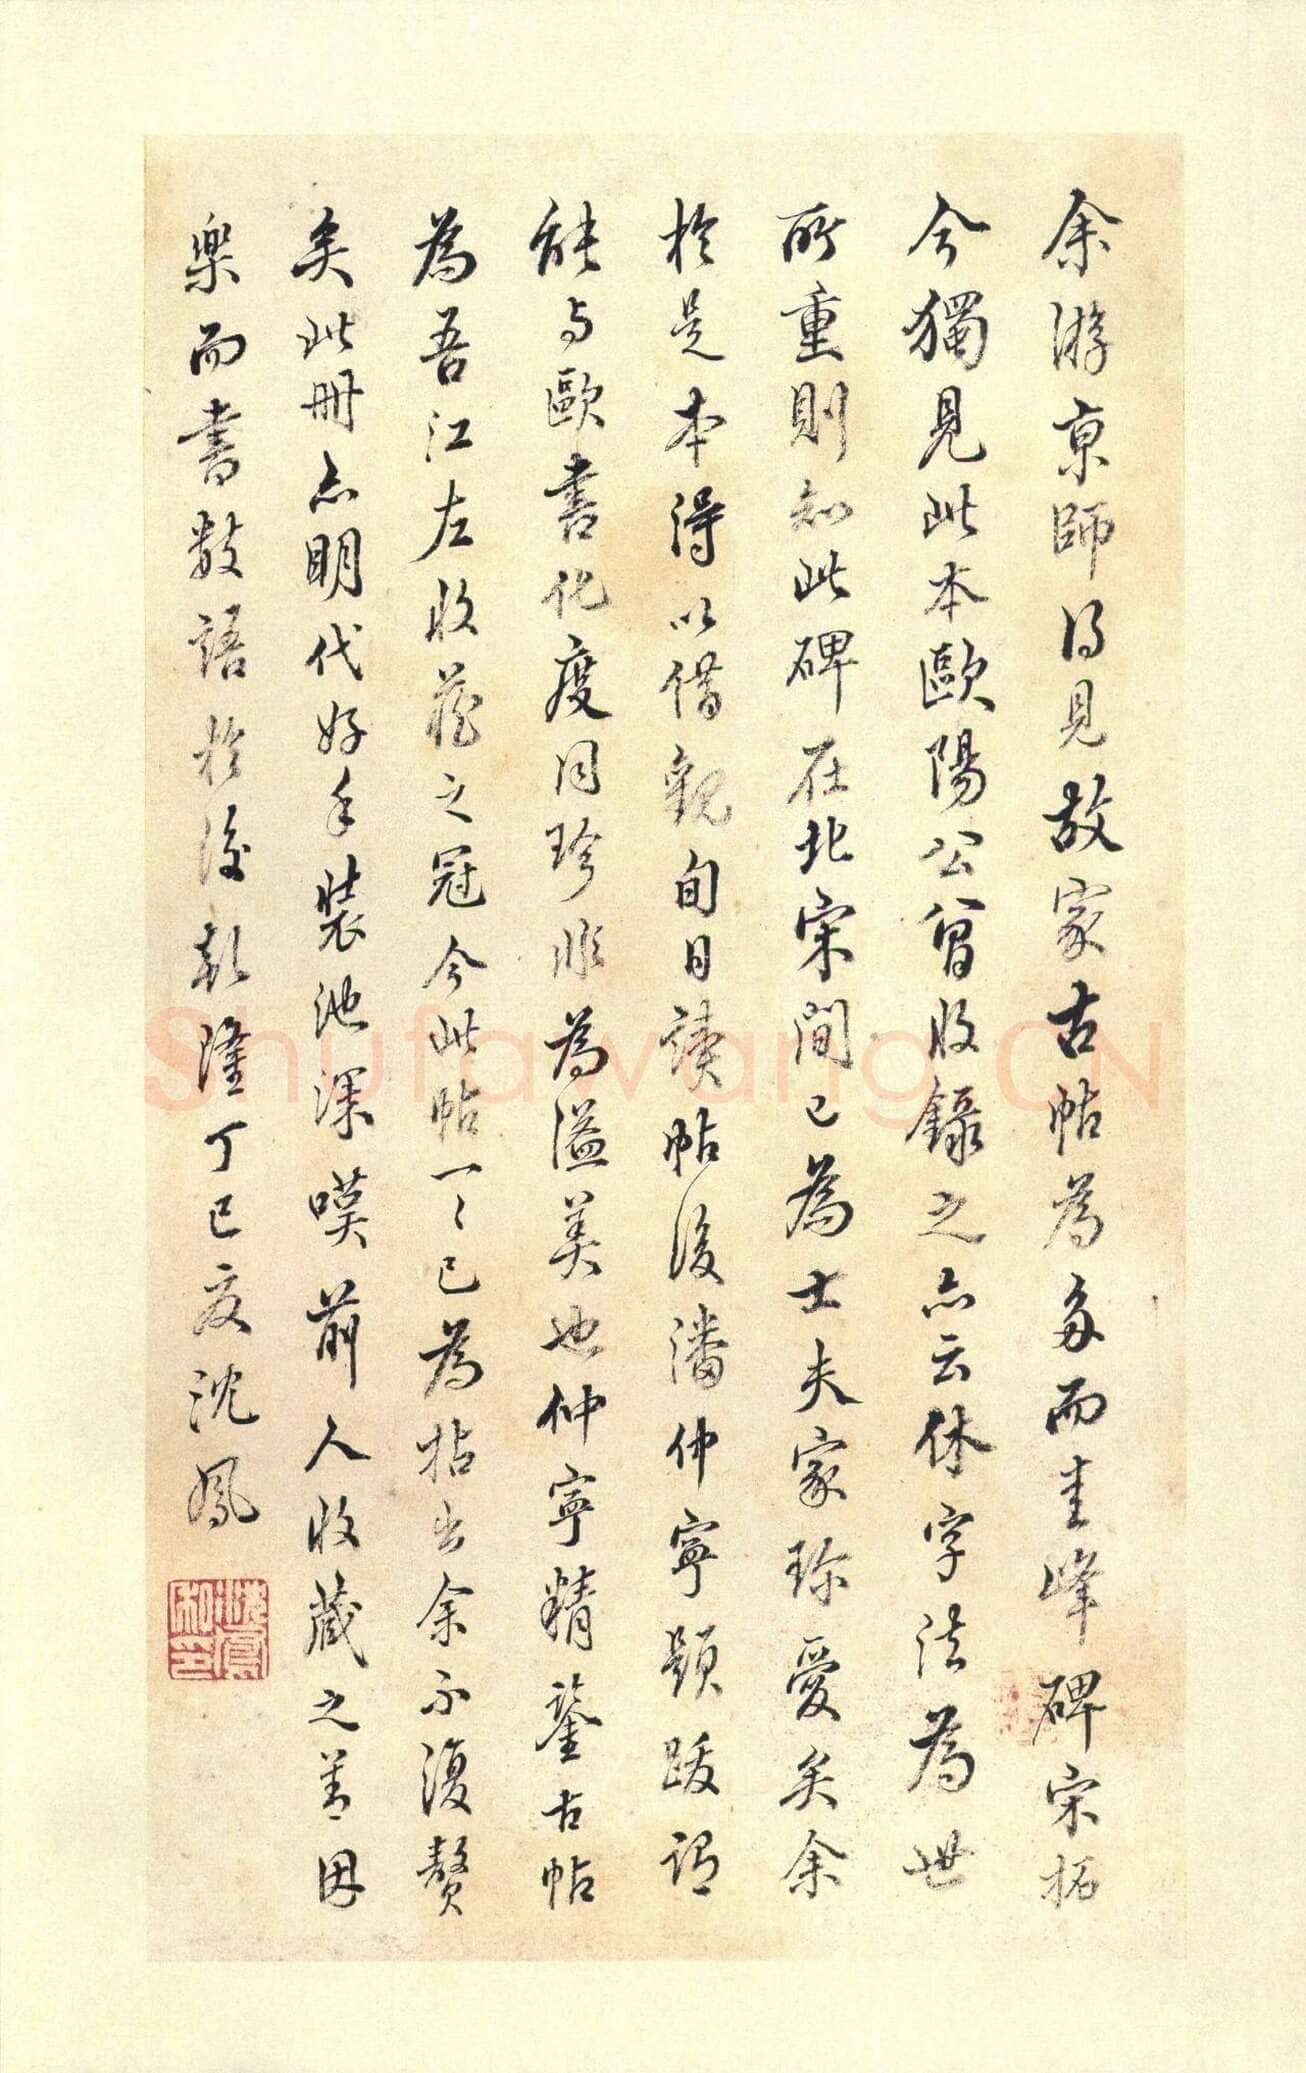 余游京師得見故家古帖為多而圭峰碑宋拓
今獨見此本歐陽公曾收錄之亦云休字法為世
所重則知此碑在北宋間已為士夫家珍愛矣余
於是本得以借觀旬日讀帖後潘仲寧題跋謂
能与歐書化度同珍非為溢美也仲寧精鑒古帖
為吾江左收藏之冠今此帖一々已為拈出余不復贅
矣此冊亦明代好手裝池深嘆前人收藏之善因
樂而書數語於後乾隆丁巳夏沈鳳
沈鳳私印
Shufawang.CN